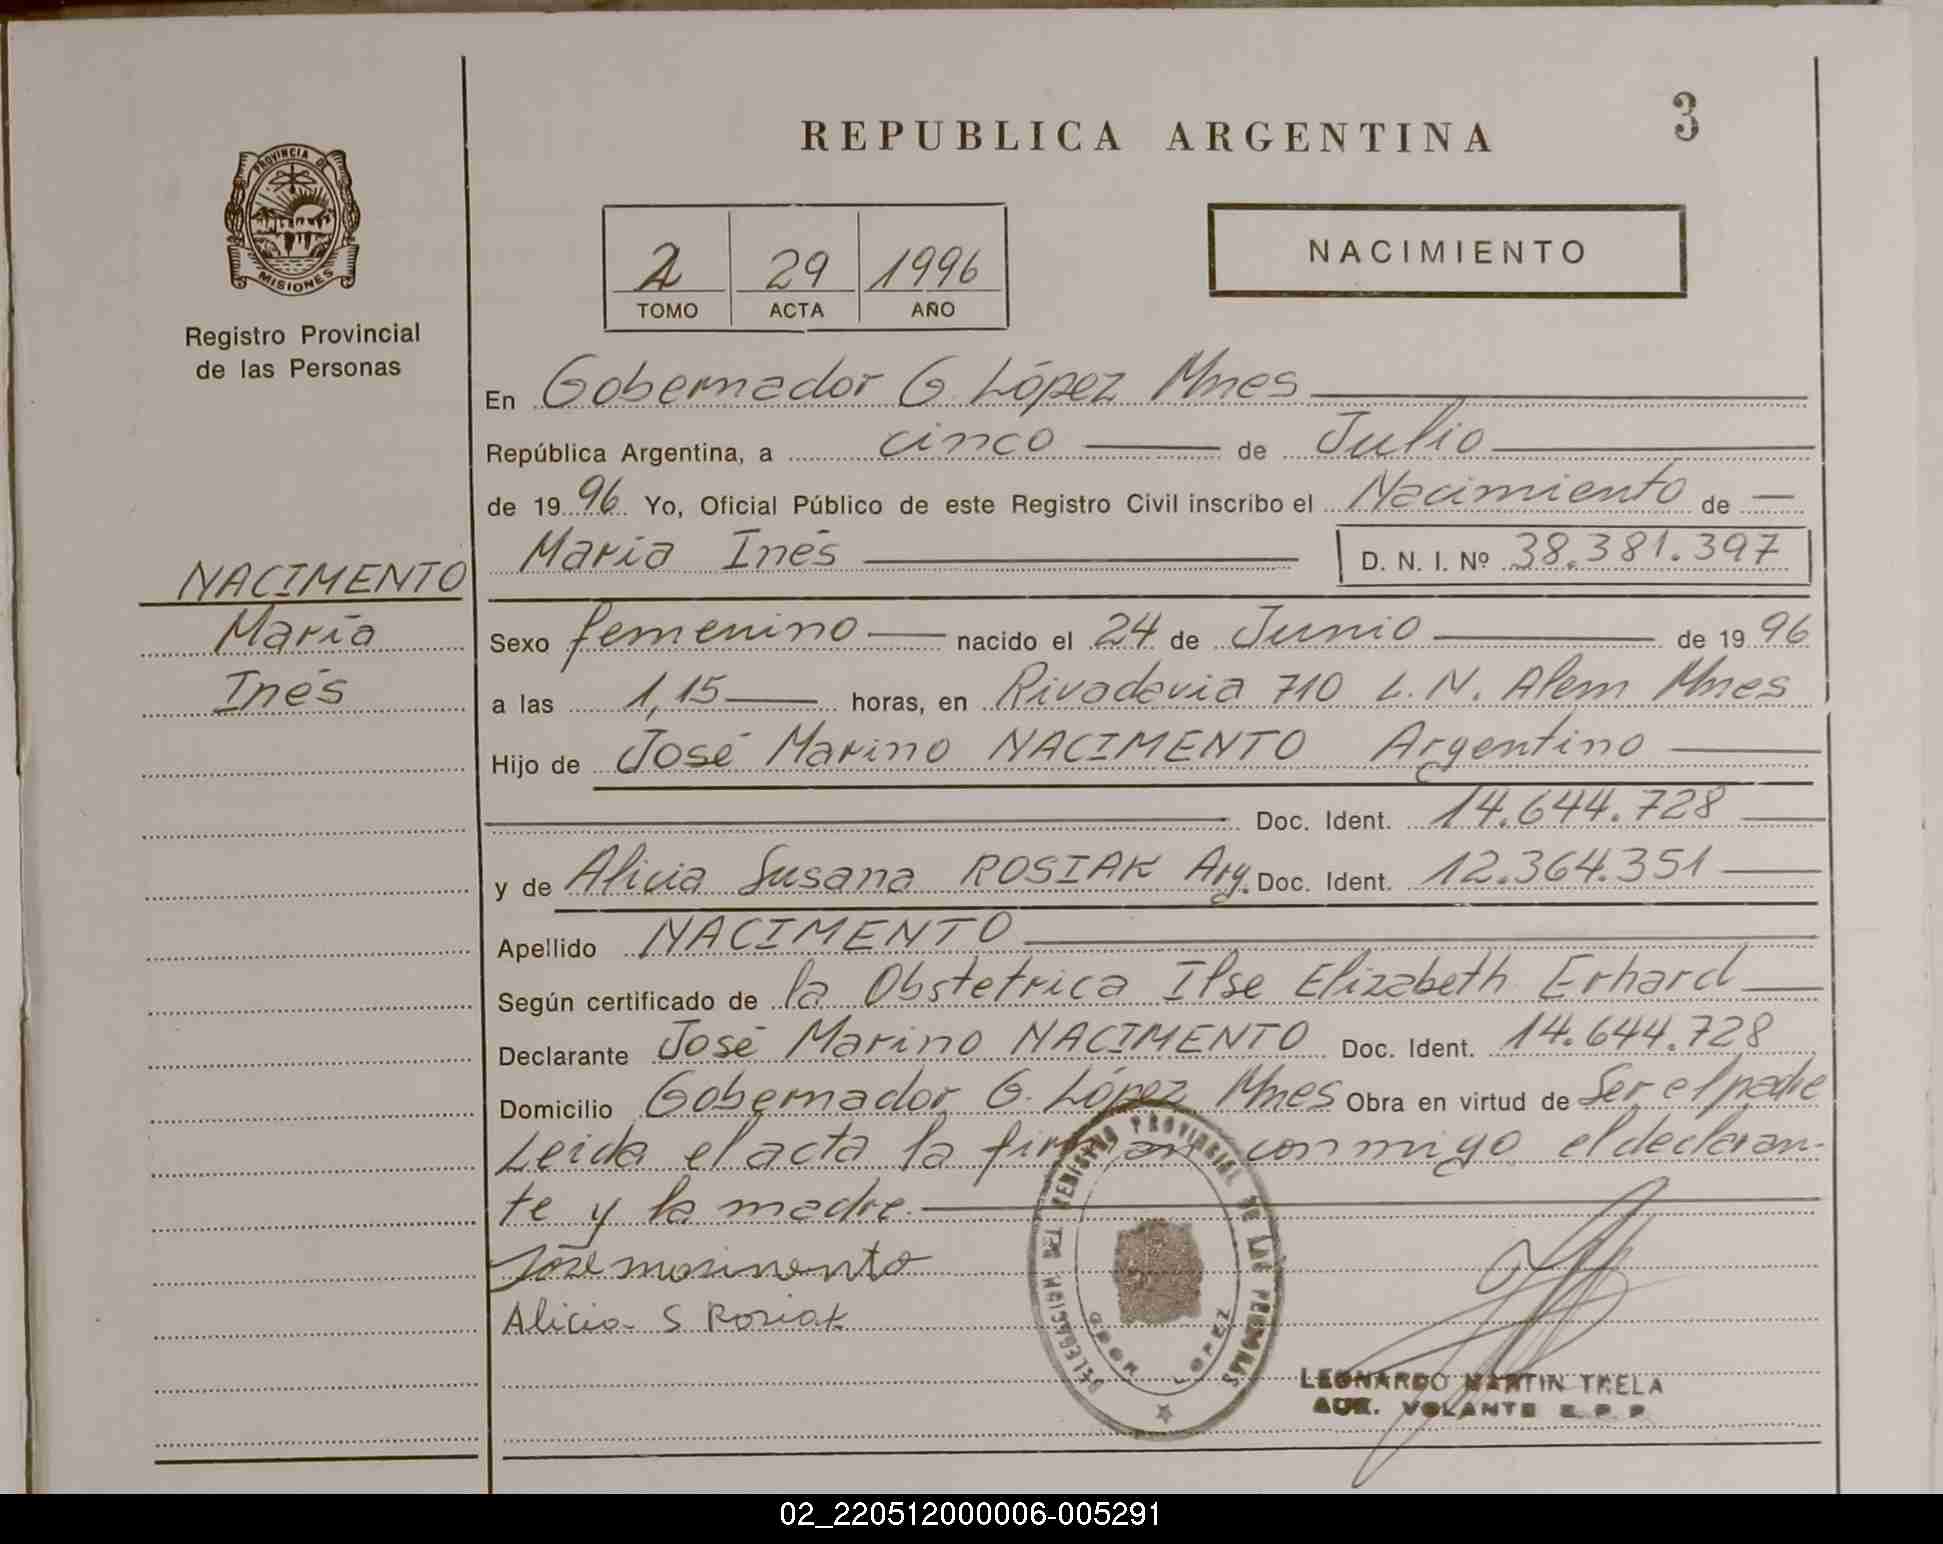 REPUBLICA ARGENTINA
3
PROVINCIA DE
MISIONES
Registro Provincial
de las Personas
2 29 1996
TOMO ACTA AÑO
NACIMIENTO
En Gobernador G. López Mnes
República Argentina, a cinco de Julio
de 19 96 Yo, Oficial Público de este Registro Civil inscribo el Nacimiento de
María Inés D. N. I. Nº 38.381.397
NACIMENTO
María
Inés
Sexo femenino nacido el 24 de Junio de 19 96
a las 1,15 horas, en Rivadavia 710 L. N. Alem Mnes
Hijo de José Marino NACIMENTO Argentino
Doc. Ident. 14.644.728
y de Alicia Susana ROSIAK Arg. Doc. Ident. 12.364.351
Apellido NACIMENTO
Según certificado de la Obstetrica Ilse Elizabeth Erhard
Declarante José Marino NACIMENTO Doc. Ident. 14.644.728
Domicilio Gobernador G. López Mnes Obra en virtud de Ser el padre
Leida el acta la firman conmigo el declaran-
te y la madre
Alicia S Rosiak
DELEGACION DEL REGISTRO PROVINCIAL DE LAS PERSONAS
GDOR LOPEZ
LEONARDO MARTIN TRELA
AUX. VOLANTE R. P. P.
02_220512000006-005291